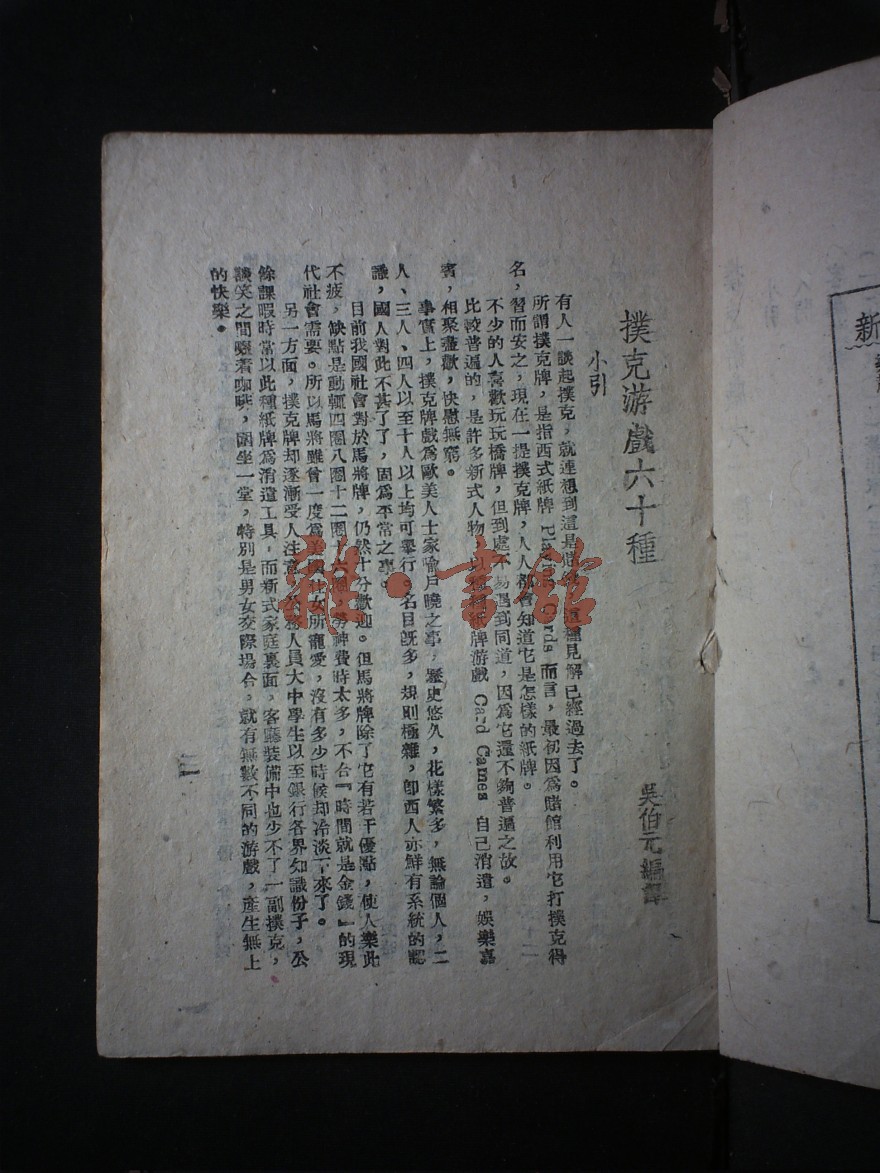 撲克游戲六十種
吳伯元編譯
小引
有人一談起撲克,就連想到這是賭錢,這種見解已經過去了。
所謂撲克牌,是指西式紙牌 Playing Cards 而言,最初因爲賭館利用它打撲克得
名,習而安之,現在一提撲克牌,人人都會知道它是怎樣的紙牌。
不少的人喜歡玩玩橋牌,但到處不易遇到同道,因爲它還不夠普遍之故。
比較普遍的,是許多新式人物,以種種紙牌游戲 Card Games 自己消遣,娛樂嘉
賓,相聚盡歡,快慰無窮。
事實上,撲克牌戲爲歐美人士家喻戶曉之事,歷史悠久,花樣繁多,無論個人,二
人、三人、四人以至十人以上均可舉行。名目旣多,規則極雜,卽西人亦鮮有系統的認
識,國人對此不甚了了,固爲平常之事。
目前我國社會對於馬將牌,仍然十分歡迎。但馬將牌除了它有若干優點,使人樂此
不疲,缺點是動輒四圈八圈十二圈十六圈,勞神費時太多,不合『時間就是金錢』的現
代社會需要。所以馬將雖曾一度爲美國仕女所寵愛,沒有多少時候却冷淡下來了。
另一方面,撲克牌却逐漸受人注意,公務人員大中學生以至銀行各界知識份子,公
餘課暇時常以此種紙牌爲消遣工具,而新式家庭裏面,客廳裝備中也少不了一副撲克,
談笑之間啜着咖啡,圍坐一堂,特別是男女交際場合,就有無數不同的游戲,產生無上
的快樂。
一
新
雜·書館